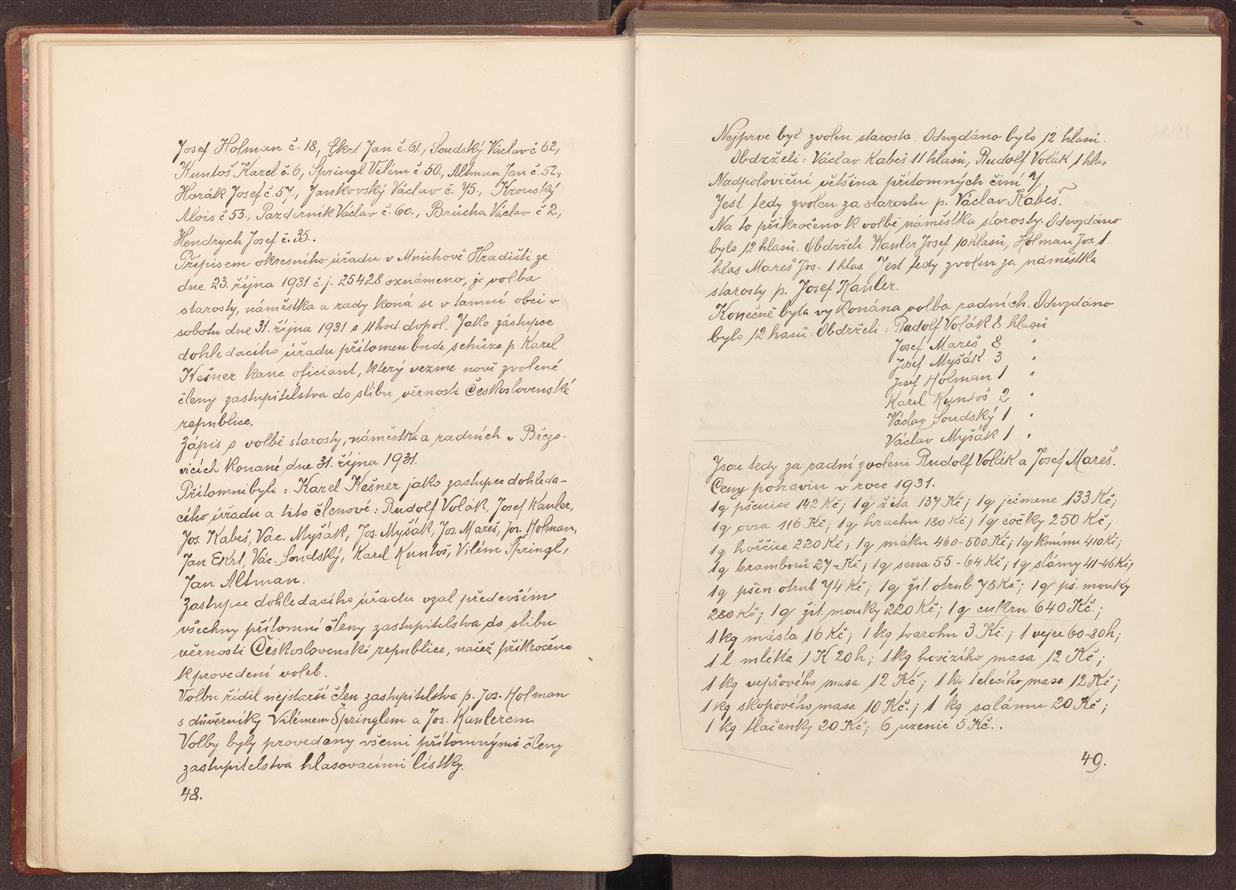 Josef Holman č. 18, Ekrt Jan č. 61, Soudský Václav č 62,
Kuntoš Karel č. 6, Špringl Vilém č 50, Altman Jan č. 52,
Horák Josef č. 57, Jankovský Václav č. 45, Kronský
Alois č 53., Pazderník Václav č 60., Brůcha Václav č 2,
Hendrych Josef č. 35.
Přípisem okresního úřadu v Mnichově Hradišti ze
dne 23. října 1931 č. j. 25428 oznámeno, že volba
starosty, náměstka a rady koná se v tamní obci v
sobotu dne 31. října 1931 o 11 hod dopol. Jako zástupce
dohledacího úřadu přítomen bude schůze p. Karel
Kešner kanc oficiant, který vezme nově zvolené
členy zastupitelstva do slibu věrnosti Československé
republice.
Zápis o volbě starosty, náměstka a radních v Březo-
vicích konané dne 31. října 1931.
Přítomni byli: Karel Kešner jako zástupce dohleda-
cího úřadu a tito členové: Rudolf Volák, Josef Kanler,
Jos. Kabeš, Vác. Myšák, Jos. Myšák, Jos. Mareš, Jos. Holman,
Jan Ekrt, Vác. Soudský, Karel Kuntoš, Vilém Špringl,
Jan Altman.
Zástupce dohledacího úřadu vzal především
všechny přítomné členy zastupitelstva do slibu
věrnosti Československé republice, načež přikročeno
k provedení voleb.
Volbu řídil nejstarší člen zastupitelstva p. Jos. Holman
s důvěrníky Vilémem Špringlem a Jos. Kanlerem
Volby byly provedeny všemi přítomnými členy
zastupitelstva hlasovacími lístky.
48.
Nejprve byl zvolen starosta. Odevzdáno bylo 12 hlasů.
Obdrželi: Václav Kabeš 11 hlasů, Rudolf Volák 1 hlas
Nadpoloviční většina přítomných činí 7
Jest tedy zvolen za starostu p. Václav Kabeš.
Na to přikročeno k volbě náměstka starosty. Odevzdáno
bylo 12 hlasů. Obdrželi Kanler Josef 10 hlasů, Holman Jos. 1.
hlas Mareš Jos. 1 hlas. Jest tedy zvolen za náměstka
starosty p. Josef Kanler.
Konečně byla vykonána volba radních. Odevzdáno
bylo 12 hasů. Obdrželi: Rudolf Volák 8 hlasů
Josef Mareš 8 "
Josef Myšák 3 "
Josef Holman 1 "
Karel Kuntoš 2 "
Václav Soudský 1 "
Václav Myšák 1 "
Jsou tedy za radní zvoleni Rudolf Volák a Josef Mareš.
Ceny potravin v roce 1931.
1q pšenice 142 Kč; 1q žita 137 Kč; 1q ječmene 133 Kč;
1q ovsa 116 Kč; 1q hrachu 180 Kč; 1q čočky 250 Kč;
1q hořčice 220 Kč; 1q máku 460-500 Kč; 1q kmínu 410 Kč;
1q bramborů 27-Kč; 1q sena 55-64 Kč; 1q slámy 41-46 Kč;
1q pšen otrub 74 Kč; 1q žit. otrub 75 Kč; 1q pš. mouky
280 Kč; 1q žit. mouky 220 Kč; 1q cukru 640 Kč.;
1 kg másla 16 Kč; 1 kg tvarohu 3 Kč.; 1 vejce 60-80 h;
1 l mléka 1 K 20 h; 1 kg hovězího masa 12 Kč;
1 kg vepřového masa 12 Kč; 1 kg telecího masa 12 Kč;
1 kg skopového masa 10 Kč.; 1 kg salámu 20 Kč;
1 kg tlačenky 20 Kč; 6 uzenic 5 Kč..
49.